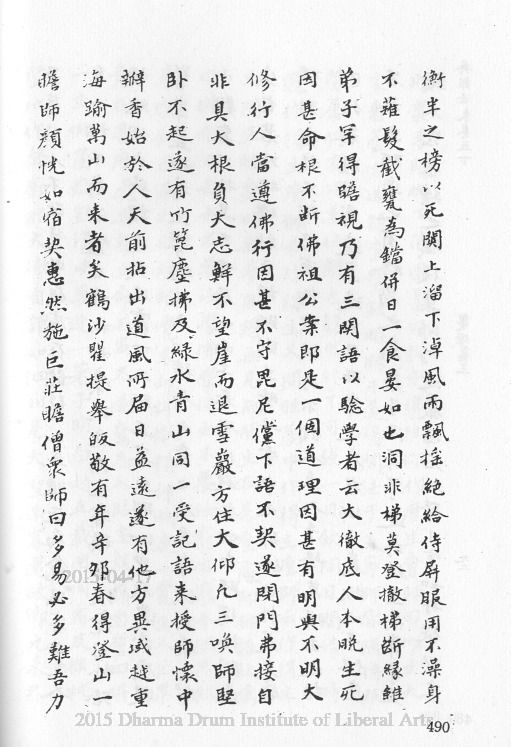 衡半之榜以死關上溜下淖風雨飄搖絕給侍屏服用不澡身
不薙髮截甕為鐺併日一食晏如也洞非梯莫登撤梯斷緣雖
弟子罕得瞻視乃有三関語以驗學者云大徹底人本脫生死
因甚命根不斷佛祖公案即是一個道理因甚有明與不明大
修行人當遵佛行因甚不守毘尼儻下語不契遂閉門弗接自
非具大根負大志鮮不望崖而退雪巖方住大仰凡三喚師堅
卧不起遂有竹篦塵拂及綠水青山同一受記語来授師懷中
瓣香始於人天前拈出道風所届日益遠遂有他方異域越重
海踰萬山而来者矣鶴沙瞿提舉皈敬有年辛卯春得登山
瞻師顏恍如宿契惠然施巨莊瞻僧衆師曰多易必多難吾力
2015-04-17
2015 Dharma Drum Institute of Liberal Arts
490